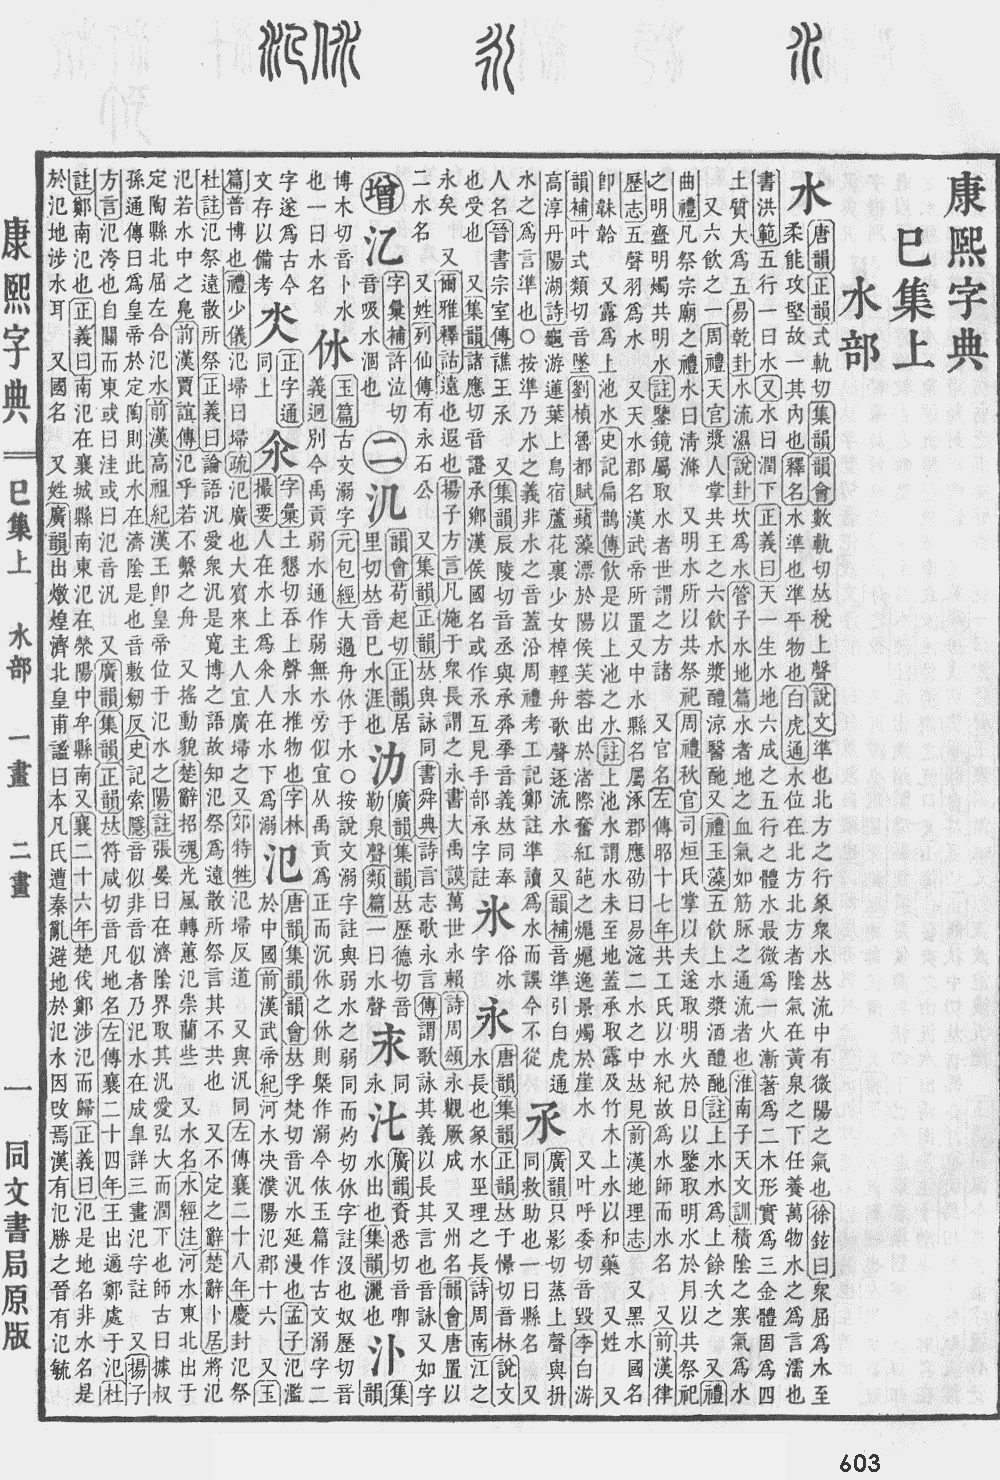 康熙字典
巳集上
水部
水 唐韻正韻式軌切集韻韻會數軌切𠀤稅上聲說文準也北方之行象衆水𠀤流中有微陽之氣也徐鉉曰衆屈爲水至
柔能攻堅故一其內也釋名水準也準平物也白虎通水位在北方北方者陰氣在黃泉之下任養萬物水之爲言濡也
書洪範五行一曰水又水曰潤下正義曰天一生水地六成之五行之體水最微爲一火漸著爲二木形實爲三金體固爲四
土質大爲五易乾卦水流濕說卦坎爲水管子水地篇水者地之血氣如筋脉之通流者也淮南子天文訓積陰之寒氣爲水
又六飮之一周禮天官漿人掌共王之六飮水漿醴涼醫酏又禮玉藻五飮上水漿酒醴酏註上水水爲上餘次之 又禮
曲禮凡祭宗廟之禮水曰淸滌 又明水所以共祭祀周禮秋官司烜氏掌以夫遂取明火於日以鑒取明水於月以共祭祀
之明齍明燭共明水註鑒鏡屬取水者世謂之方諸 又官名左傳昭十七年共工氏以水紀故爲水師而水名 又前漢律
歷志五聲羽爲水 又天水郡名漢武帝所置又中水縣名屬涿郡應劭曰易滱二水之中𠀤見前漢地理志 又黑水國名
卽靺鞈 又露爲上池水史記扁鵲傳飮是以上池之水註上池水謂水未至地蓋承取露及竹木上水以和藥 又姓 又
韻補叶式類切音墜劉楨魯都賦蘋藻漂於陽侯芙蓉出於渚際奮紅葩之𤆼𤆼逸景燭於崖水 又叶呼委切音毀李白游
高淳丹陽湖詩龜游蓮葉上鳥宿蘆花裏少女棹輕舟歌聲逐流水 又韻補音準引白虎通
水之爲言準也○按準乃水之義非水之音蓋沿周禮考工記鄭註準讀爲水而誤今不從
氶 廣韻只影切蒸上聲與抍
同救助也一曰縣名 又
人名晉書宗室傳譙王氶 又集韻辰陵切音丞與承丞𠀤同奉
也受也 又集韻諸應切音證承鄉漢侯國名或作氶互見手部承字註
氷 俗冰
字
永 唐韻集韻正韻𠀤于憬切音栐說文
水長也象水巠理之長詩周南江之
永矣 又爾雅釋詁遠也遐也揚子方言凡施于衆長謂之永書大禹謨萬世永賴詩周頌永觀厥成 又州名韻會唐置以
二水名 又姓列仙傳有永石公 又集韻正韻𠀤與詠同書舜典詩言志歌永言傳謂歌詠其義以長其言也音詠又如字
增
𣱵 字彙補許泣切
音吸水涸也
二
氿 韻會苟起切正韻居
里切𠀤音巳水涯也
氻 廣韻集韻𠀤歷德切音
勒泉聲類篇一曰水聲
𣱱 同
永
𣱼 廣韻資悉切音喞
水出也集韻灑也
汴 集韻
博木切音卜水
也一曰水名
㲻 玉篇古文溺字元包經大過舟㲻于水○按說文溺字註與弱水之弱同而灼切㲻字註沒也奴歷切音
義迥別今禹貢弱水通作弱無水旁似宜从禹貢爲正而沉㲻之㲻則槩作溺今依玉篇作古文溺字二
字遂爲古今
文存以備考
正字通
同上
氽 字彙土懇切吞上聲水推物也字林
撮要人在水上爲氽人在水下爲溺
氾 唐韻集韻韻會𠀤孚梵切音汎水延漫也孟子氾濫
於中國前漢武帝紀河水決濮陽氾郡十六 又玉
篇普博也禮少儀氾埽曰埽疏氾廣也大賔來主人宜廣埽之又郊特牲氾埽反道 又與汎同左傳襄二十八年慶封氾祭
杜註氾祭遠散所祭正義曰論語汎愛衆汎是寬博之語故知氾祭爲遠散所祭言其不共也 又不定之辭楚辭卜居將氾
氾若水中之鳧前漢賈誼傳氾乎若不繫之舟 又搖動貌楚辭招魂光風轉蕙氾崇蘭些 又水名水經注河水東北出于
定陶縣北屈左合氾水前漢高祖紀漢王卽皇帝位于氾水之陽註張晏曰在濟陰界取其汎愛弘大而潤下也師古曰據叔
孫通傳曰爲皇帝於定陶則此水在濟陰是也音敷劒反史記索隱音似非音似者乃汜水在成臯詳三畫汜字註 又揚子
方言氾洿也自關而東或曰注或曰氾音汎 又廣韻集韻正韻𠀤符咸切音凡地名左傳襄二十四年王出適鄭處于氾杜
註鄭南氾也正義曰南氾在襄城縣南東氾在滎陽中牟縣南又襄二十六年楚伐鄭涉氾而歸正義曰氾是地名非水名是
於氾地涉水耳 又國名 又姓廣韻出燉煌濟北皇甫謐曰本凡氏遭秦亂避地於氾水因改焉漢有氾勝之晉有氾毓
康熙字典 巳集上 水部 一畫 二畫 一 同文書局原版
603